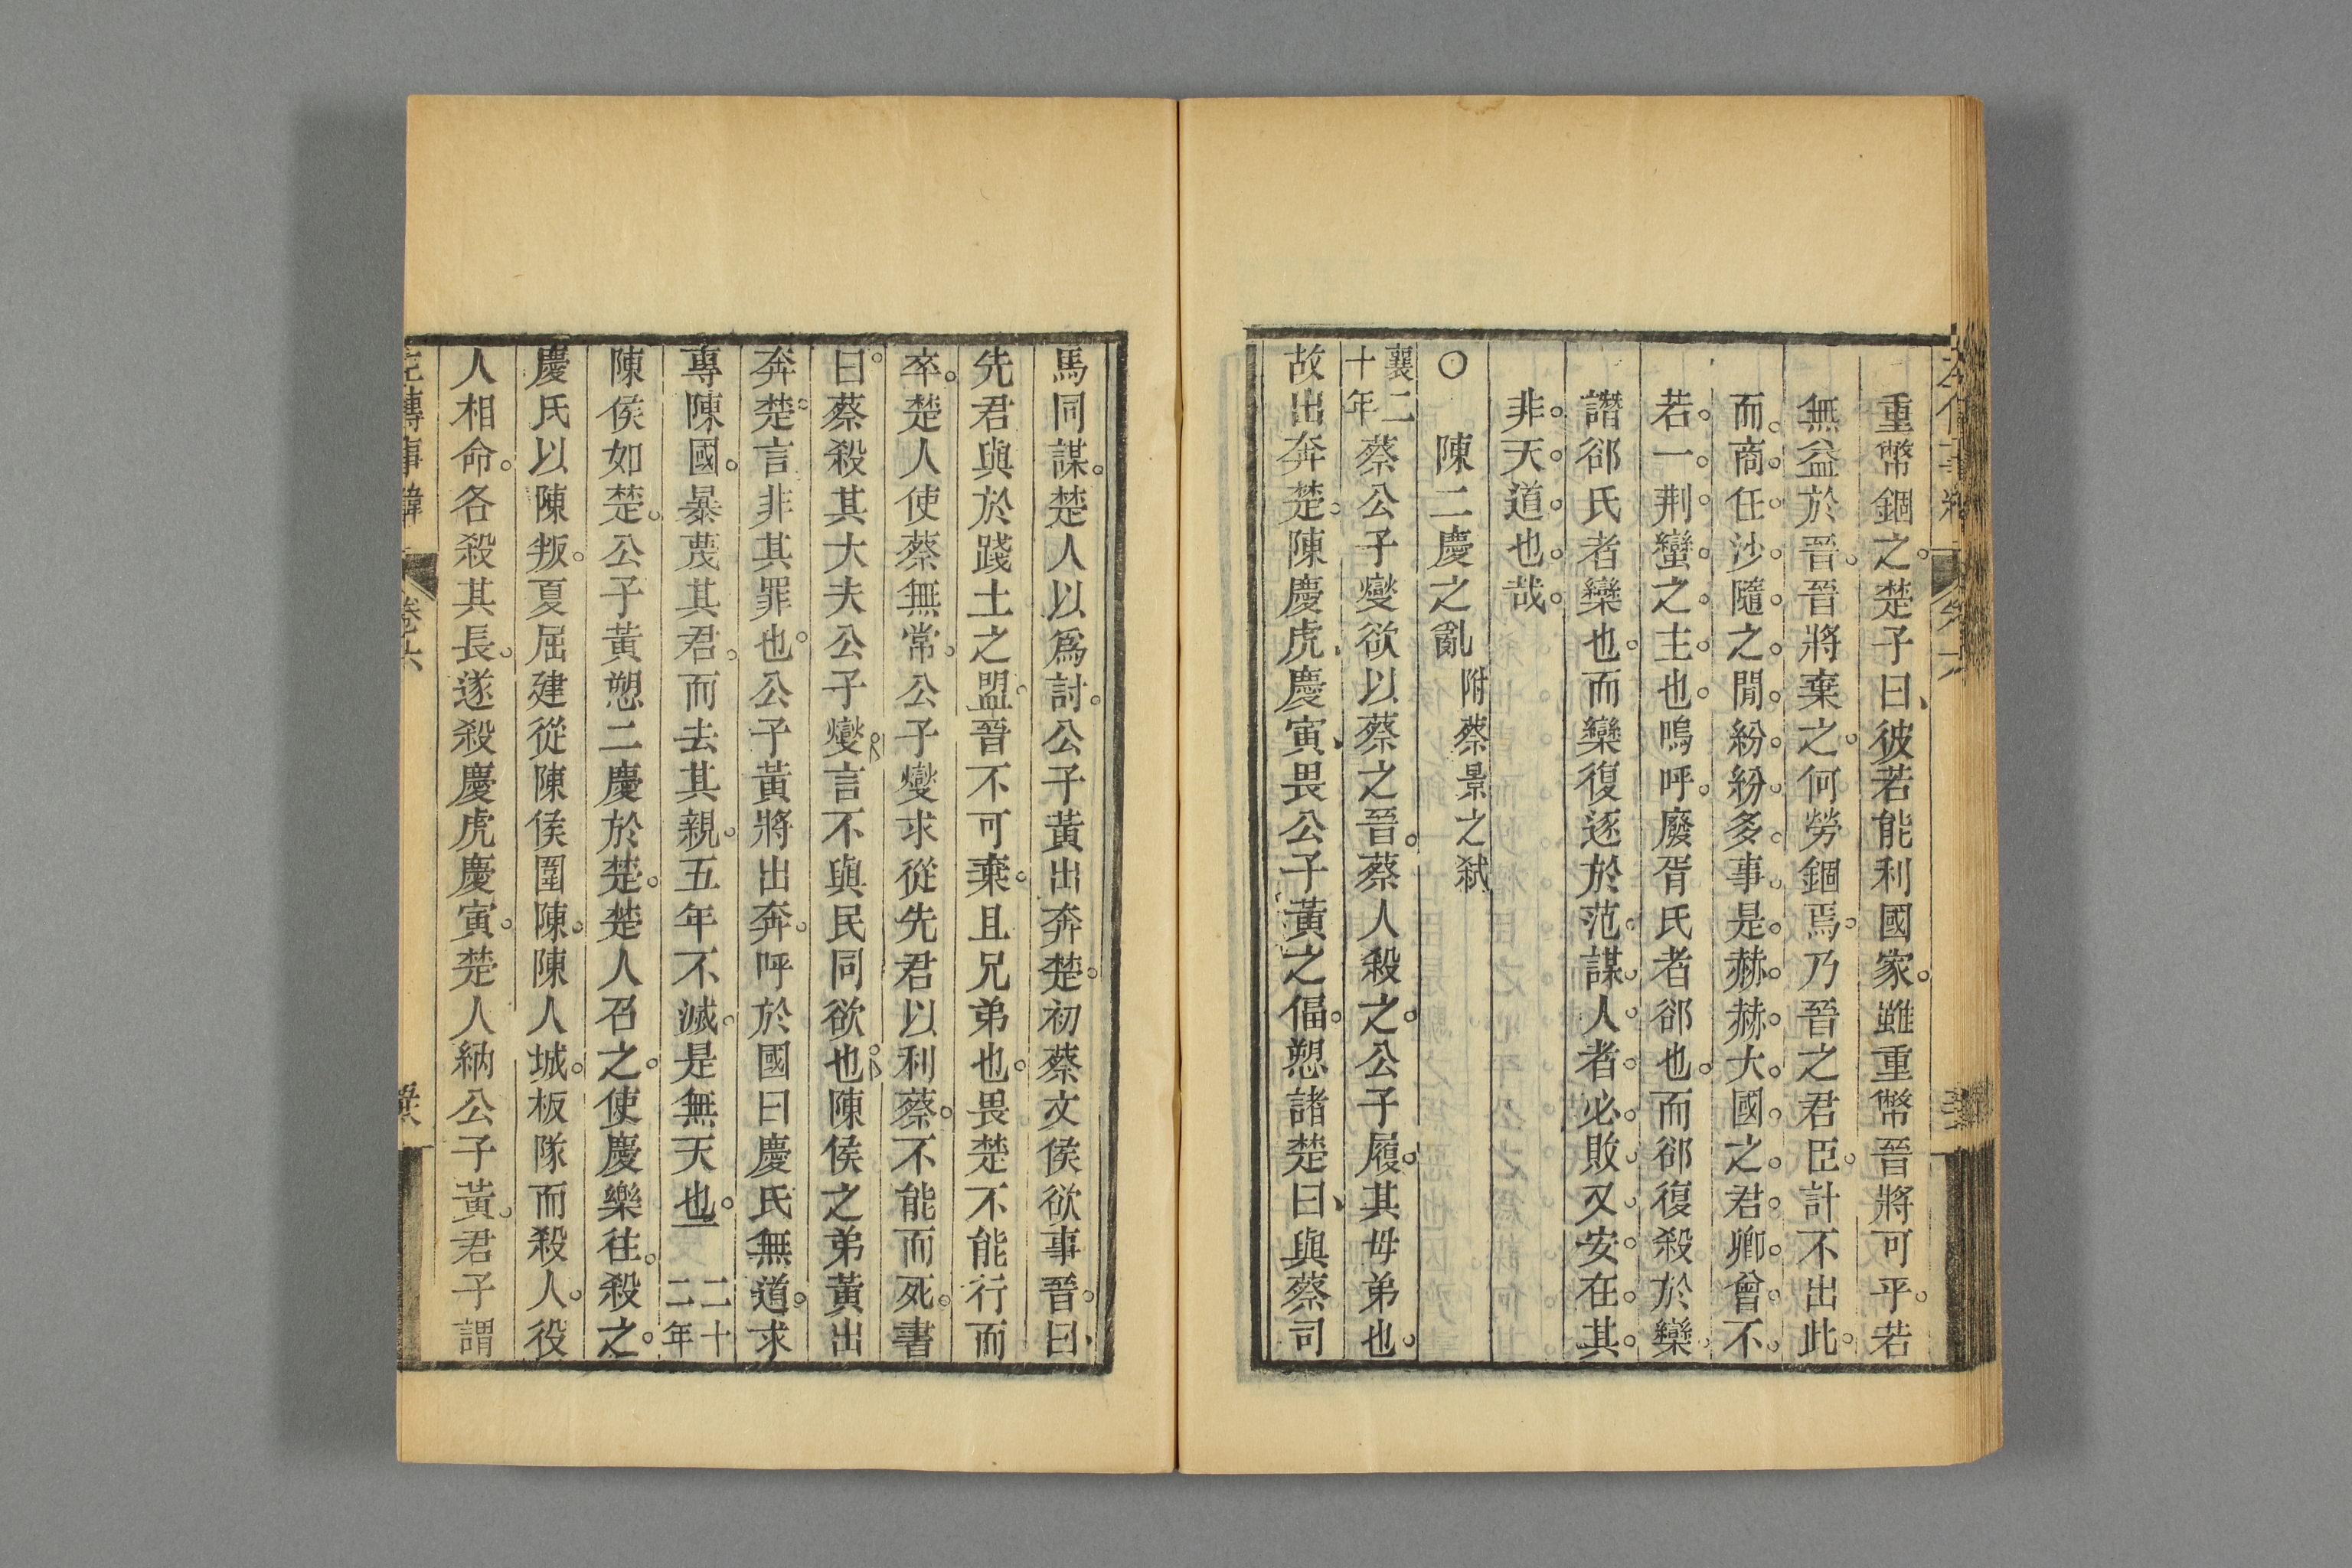 重幣錮之。楚子曰、彼若能利國家。雖重幣晉將可乎。若
無益於晉。晉將棄之。何勞錮焉。乃晉之君臣。計不出此。
而。商。任。沙。隨。之。閒。紛。紛。多。事。是。赫。赫。大。國。之。君。卿。曾。不。
若。一。荆。蠻。之。主。也。嗚呼。廢胥氏者郤也。而郤復殺於欒。
譖郤氏者欒也。而欒復逐於范。謀。人。者。必。敗。又。安。在。其。
非。天。道。也。哉。
○陳二慶之亂 附蔡景之弒
襄二十年 蔡公子燮欲以蔡之晉。蔡人殺之。公子履。其母弟也。
故出奔楚。陳慶虎、慶寅、畏公子黃之偪。愬諸楚曰、與蔡司
馬同謀。楚人以爲討。公子黃出奔楚。初蔡文侯欲事晉。曰、
先君與於踐土之盟。晉不可棄。且兄弟也。畏楚不能行而
卒。楚人使蔡無常。公子燮求從先君以利蔡。不能而死。書
曰。蔡殺其大夫公子燮。言不與民同欲也。陳侯之弟黃出
奔楚。言非其罪也。公子黃將出奔。呼於國曰慶氏無道。求
專陳國。暴蔑其君。而去其親。五年不滅。是無天也。 二十二年
陳侯如楚。公子黃愬二慶於楚。楚人召之。使慶樂往。殺之。
慶氏以陳叛。夏屈建從陳侯圍陳。陳人城。板隊而殺人。役
人相命。各殺其長。遂殺慶虎慶寅。楚人納公子黃。君子謂
左傳事緯 卷六